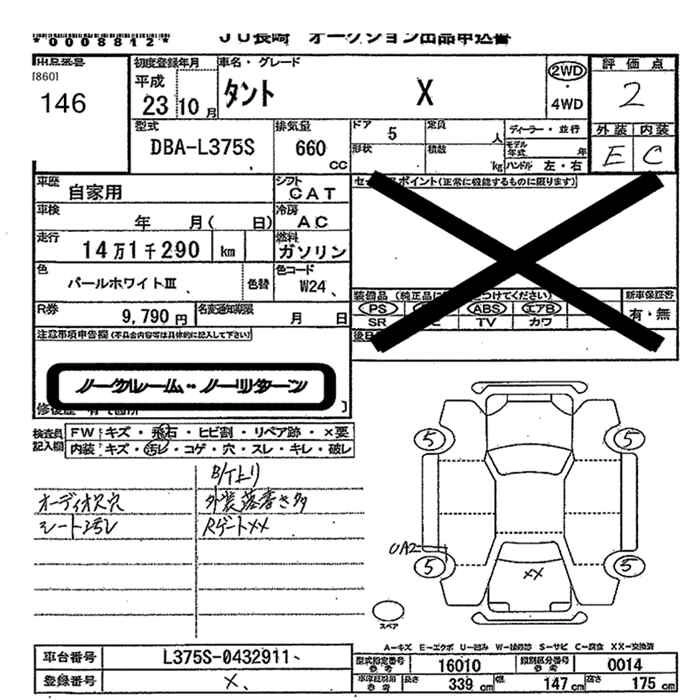 *0008812* JU長崎 オークション出品申込書
出品番号 初度登録年月 車名・グレード 2WD 評価点
[860] 平成
146 23 10月 タント X ・ 4WD 2
型式 排気量 ドア 5 定員 人 ディーラー・並行 外装 内装
DBA-L375S 660 CC 形状 積載 kg モデル年式 年 E C
ハンドル 左・右
車歴 自家用 シフト CAT セールスポイント(正常に機能するものに限ります)
車検 年 月( 日) 冷房 AC
走行 14万1千290 km 燃料 ガソリン
色 パールホワイトⅢ 、 色替 色コード W24、
装備品 (純正品に つけてください) 新車保証書
R券 9,790円 名変通知期限 月 日 PS ABS エアB 有・無
SR TV カワ
注意事項申告欄(不具合内容等は具体的に記入して下さい) 後日
ノークレーム・ノーリターン
修復歴 有
検査員記入欄 FW キズ・飛石・ヒビ割・リペア跡・×要
内装 キズ・汚レ・コゲ・穴・スレ・キレ・破レ
B/Tより
オーディオ欠穴 外装落書き多
シート汚レ RゲートXX
5 5
UA2
5 5
XX
スペア
A-キズ E-エクボ U-凹み W-補修跡 S-サビ C-腐食 XX-交換済
車台番号 L375S-0432911、 型式指定番号 参考 16010 類別区分番号 参考 0014
登録番号 ×、 車両実測用 参考 長さ 339 cm 幅 147 cm 高さ 175 cm